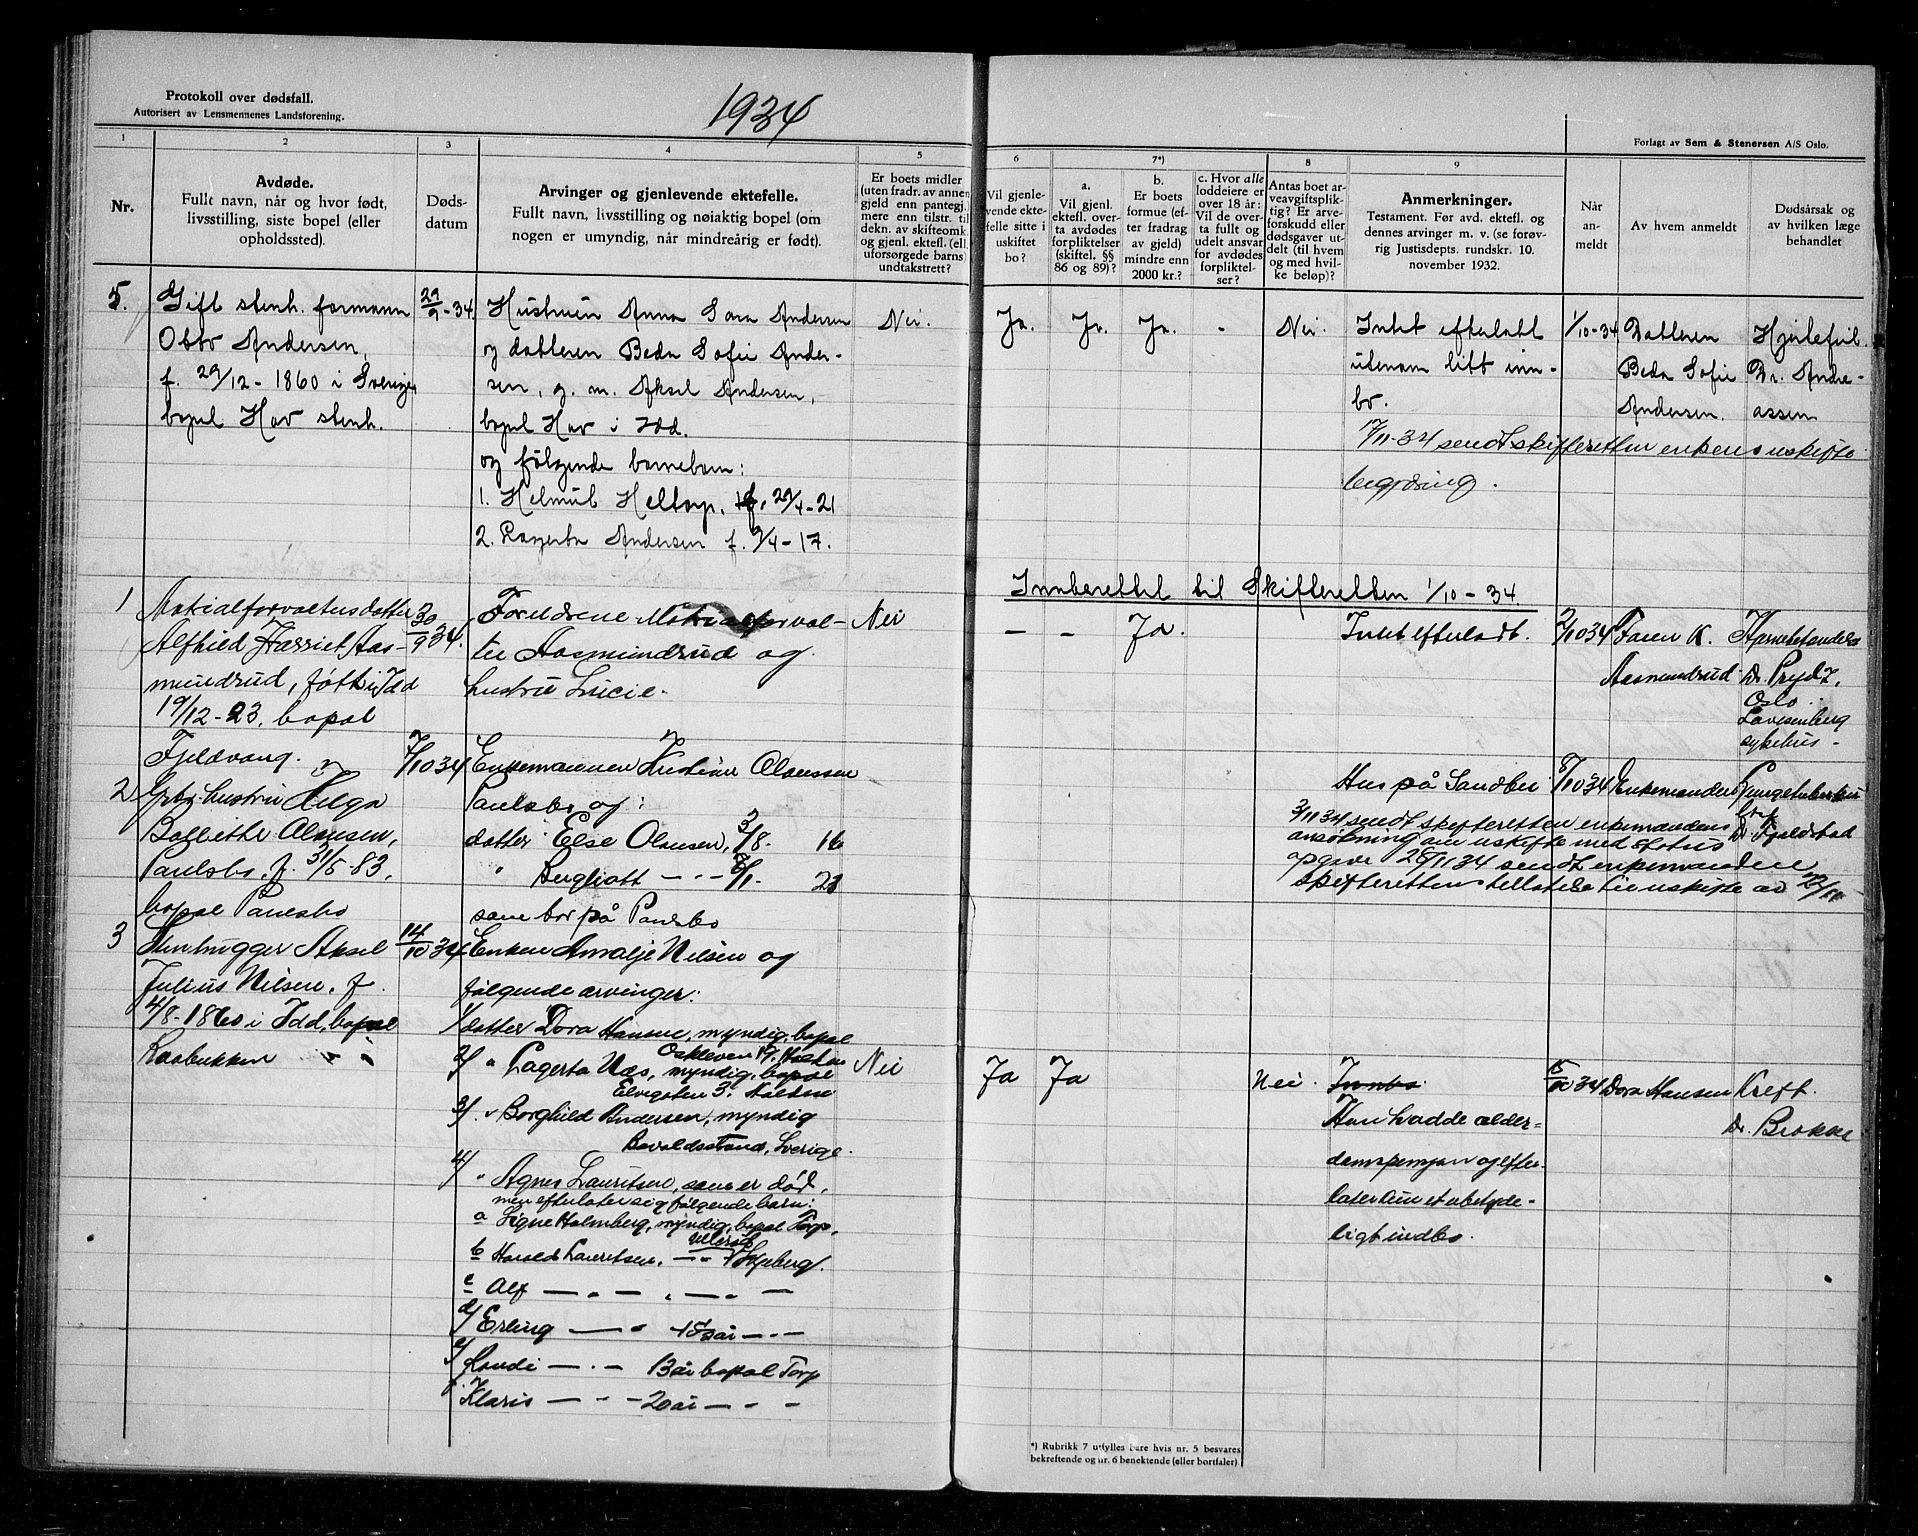 Protokoll over dødsfall.
Autorisert av Lensmennenes Landsforening.
1934
Forlagt av Sem & Stenersen A/S Oslo.
1
2
3
4
5
6
7*)
8
9
Nr.
Avdøde.
Fullt navn, når og hvor født,
livsstilling, siste bopel (eller
opholdssted).
Døds-
datum
Arvinger og gjenlevende ektefelle.
Fullt navn, livsstilling og nøiaktig bopel (om
nogen er umyndig, når mindreårig er født).
Er boets midler
(uten fradr. av annen
gjeld enn pantegj.
mere enn tilstr. til
dekn. av skifteomk.
og gjenl. ektef. (ell.
uforsørgede barns)
undtakstrett?
Vil gjenle-
vende ekte-
felle sitte i
uskiftet
bo?
a.
Vil gjenl.
ektefl. over-
ta avdødes
forpliktelser
(skiftel. §§
86 og 89)?
b.
Er boets
formue (ef-
ter fradrag
av gjeld)
mindre enn
2000 kr.?
c. Hvor alle
loddeiere er
over 18 år:
Vil de over-
ta fullt og
udelt ansvar
for avdødes
forpliktel-
ser?
Antas boet ar-
veavgiftsplik-
tig? Er arve-
forskudd eller
dødsgaver ut-
delt (til hvem
og med hvil-
ke beløp)?
Anmerkninger.
Testament. Før avd. ektefl. og
dennes arvinger m. v. (se forøv-
rig Justisdepts. rundskr. 10.
november 1932.
Når
an-
meldt
Av hvem anmeldt
Dødsårsak og
av hvilken læge
behandlet
5.
Gift stenh. formann
Otto Andersen,
f. 29/12 - 1860 i Sverige,
bopel Hov stenh.
29/9-34.
Hustruen Anna Sara Andersen
og datteren Beda Sofie Ander-
sen, g. m. Aksel Andersen,
bopel Hov i Idd.
og følgende barnebarn:
1. Helmut Heltorp, f. 29/4-21
2. Lagerta Andersen f. 9/4-17.
Nei.
Ja.
Ja.
Ja.
-
Nei.
Intet efterlatt
utenom litt inn-
bo.
17/11-34 sendt skifteretten enkens uskifte
begjæring.
1/10-34
Datteren
Beda Sofie
Andersen.
Hjertefeil.
Dr. Andre-
assen
Innberettet til Skifteretten 1/10-34.
1
Matrialforvalters datter
Alfhild Harriet Aas-
mundrud, født i Idd
19/12-23, bopel
Fjeldvang.
30/9 34.
Foreldrene Matrialforval-
ter Aasmundrud og
hustru Lucie.
Nei
-
-
Ja.
Intet efterladt.
2/10 34
Faren K.
Aasmundrud
Dr. Prydz,
Oslo.
Lovisenberg
sykehus -
2
Gpbr. hustru Helga
Olaussen,
Paulsbo, f. 31/5-83,
bopel Paulsbo
7/10 34
Enkemannen Kristian Olaussen
Paulsbo og:
datter Else Olaussen, 3/8. 16
" Bergliott - - - 6/1. 21
som bor på Paulsbo
Hus på Sandbu
3/11 34 sendt skifteretten enkemandens
ansøkning om uskifte med status
opgave 26/11 34 sendt enkemanden
skifterettens tillatelse til uskifte av
8/10 34
Enkemanden
Lungetuberku-
lose
Dr. Fjeldstad
3
Stenhugger Aksel
Julius Nilsen, f.
4/8-1860 i Idd, bopel
14/10 34
Enken Amalje Nilsen og
følgende arvinger:
1/ datter Dora Hansen, myndig, bopel
Oskleven 19. Halden
2/ " Lagerta Næs, myndig, bopel
Elvegaten 3. Halden
3/. " Borghild Andersen, myndig
Bovaldsstrand, Sverige.
4/ " Agnes Lauritsen, som er død,
men efterlater sig følgende barn:
a Signe Holmberg, myndig, bopel Torp.
b Harald Lauritsen, - - Skjeberg.
c Alf - " - " - " -
d/ Erling - " 18 år - " -
e/ - " - 13 år bopel Torp
f. Klaris - " - 20 år - " -
Nei
Ja
Ja
Nei.
Innbo
Han hadde alder-
domspensjon og efter-
later kun et ubetyde-
ligt indbo.
15/10 34
Dora Hansen
Kreft.
Dr. Brokke
*) Rubrikk 7 utfylles bare hvis nr. 5 besvares
bekreftende og nr. 6 benektende (eller bortfaler).